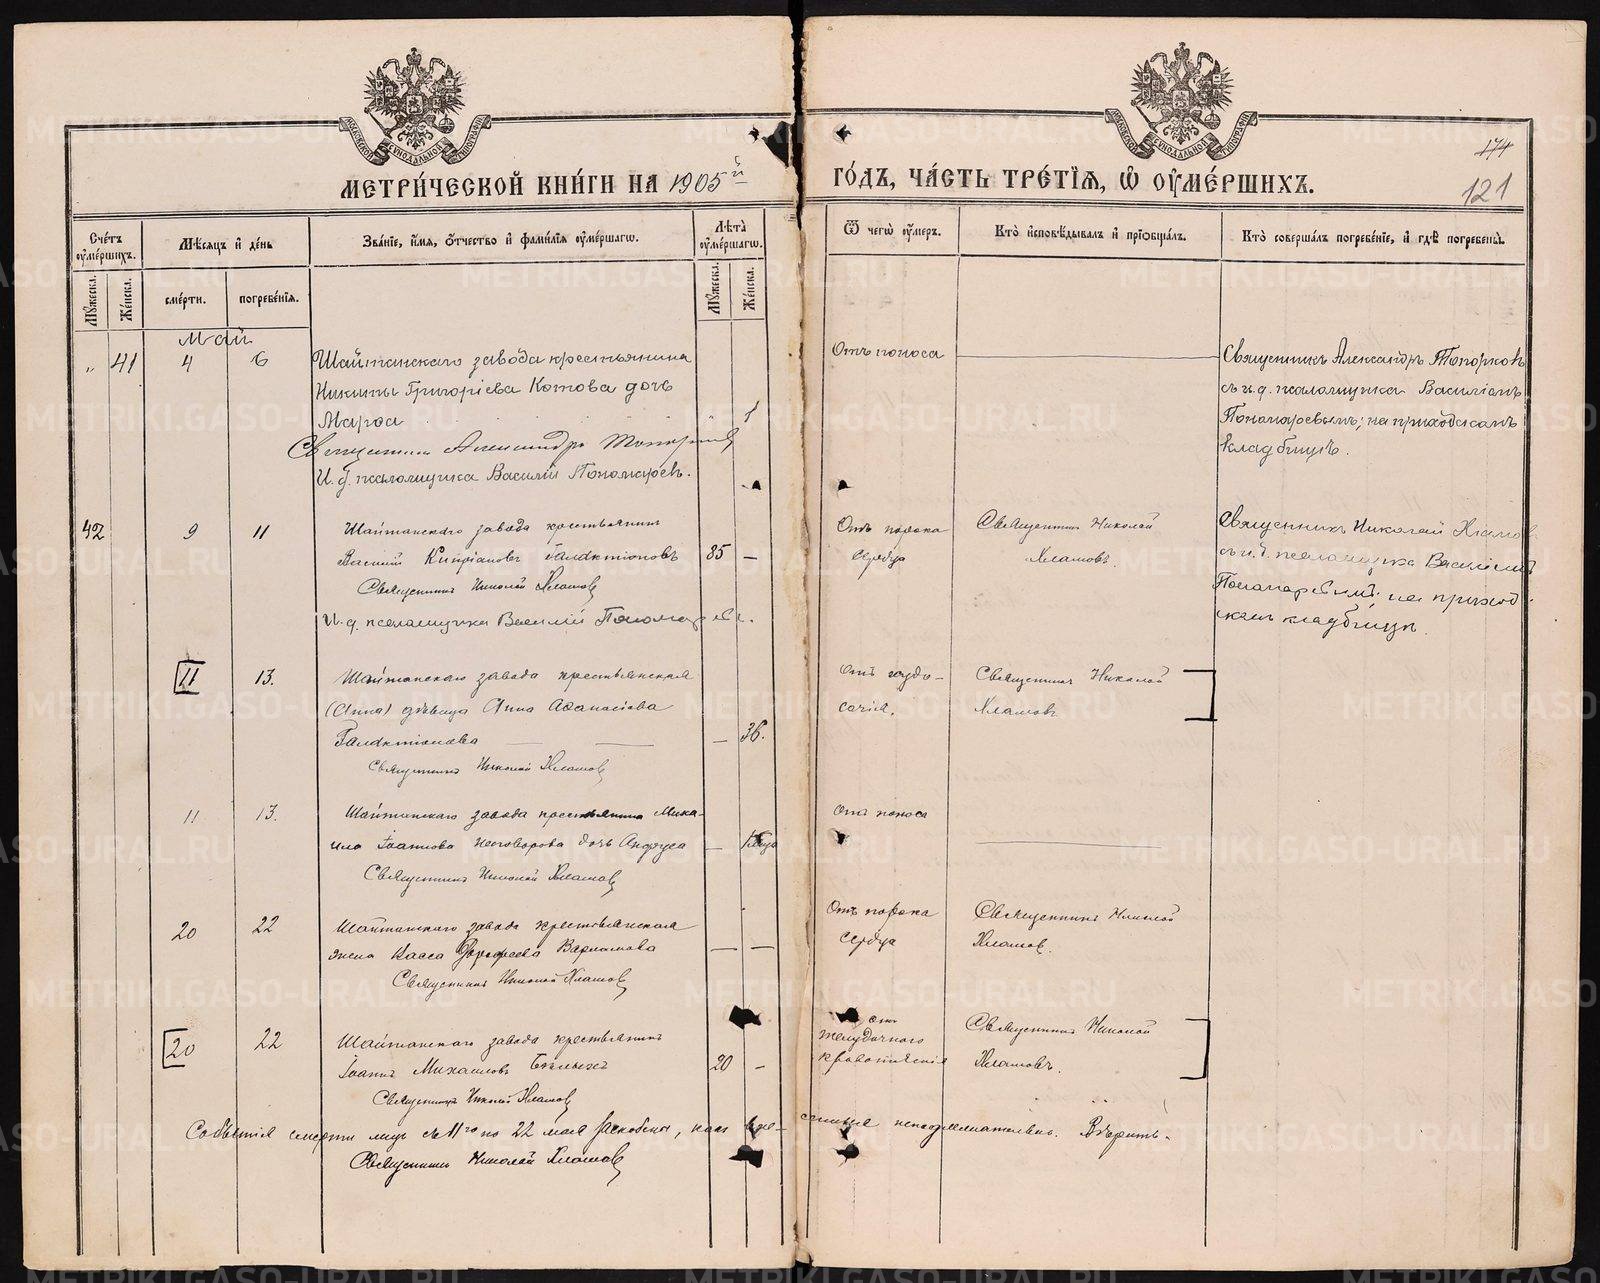 МЕТРИ́ЧЕСКОЙ КНИ́ГИ НА 1905й
ГО́ДЪ, ЧА́СТЬ ТРЕ́ТІѦ, Ѡ ОУМЕ́РШИХЪ.
174
121
Сче́тъ оумéршихъ.
Мꙋжеска.
Же́нска.
Мѣ́сяцъ и де́нь
сме́рти.
погребе́нїѧ.
Зва́нїе, и́мѧ, о́тчество и фами́лїѧ оуме́ршагѡ.
Лѣ́та оуме́ршагѡ.
Мꙋжеска.
Же́нска.
Ѿ чегѡ̀ оу́меръ.
Кто̀ исповѣ́дывалъ и прїѻбща́лъ.
Кто̀ соверша́лъ погребе́нїе, и гдѣ̀ погребены̀.
Май
" 41 4 6 Шайтанскаго завода крестьянина
Никиты Григоріева Котова дочь
Марѳа 1
Священникъ Александръ Топорковъ
И. д. псаломщика Василій Пономаревъ.
Отъ поноса
Священникъ Александръ Топорковъ
съ и. д. псаломщика Василіемъ
Пономаревымъ; на приходскомъ
кладбищѣ.
42 9 11 Шайтанскаго завода крестьянинъ
Василій Кипріановъ Галактіоновъ 85 —
Священникъ Николай Хламовъ
И. д. псаломщика Василій Пономаревъ.
Отъ порока
сердца
Священникъ Николай
Хламовъ.
Священникъ Николай Хламовъ
съ и. д. псаломщика Василіемъ
Пономаревымъ; на приход-
скомъ кладбищѣ.
11 13. Шайтанскаго завода крестьянская
(Анна) дѣвица Анна Аѳанасіева
Галактіонова — 36.
Священникъ Николай Хламовъ
Священникъ Николай
Хламовъ
11 13. Шайтанскаго завода крестьянина Миха-
ила Іоаннова дочь —
Священникъ Николай Хламовъ
Отъ поноса
20 22 Шайтанскаго завода крестьянская
жена Дороѳеева Варламова — —
Священникъ Николай Хламовъ
Отъ порока
сердца
Священникъ Николай
Хламов.
20 22 Шайтанскаго завода крестьянинъ
Іоаннъ Михаиловъ Бѣлыхъ 20 —
Священникъ Николай Хламовъ
отъ
желудочного
кровотеченія
Священникъ Николай
Хламовъ.
Событія смерти лицъ съ 11го по 22 мая
Вѣрить.
Священникъ Николай Хламовъ
METRIKI.GASO-URAL.RU